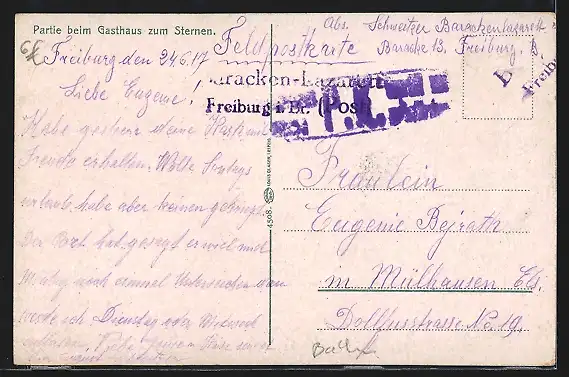 Partie beim Gasthaus zum Sternen.
Abs. Schweitzer Barackenlazarett
Baracke 13, Freiburg i. B
Feldpostkarte
Freiburg den 24.6.17
Liebe Eugenie!
Baracken-Lazarett
Freiburg i. Br. (Post
Freib
Habe gestern deine Karte mit
Freude erhalten. Wollte Sontags
urlaub habe aber keinen gekriegt.
Der Arzt hat gesagt er will mich
Montag noch einmal Untersuchen dan
werde ich Dienstag oder Mitwoch
4508.
LOUIS GLASER, LEIPZIG
Fräulein
Eugenie Bejrath
in Mülhausen Els.
Dollfusstrasse No 19.